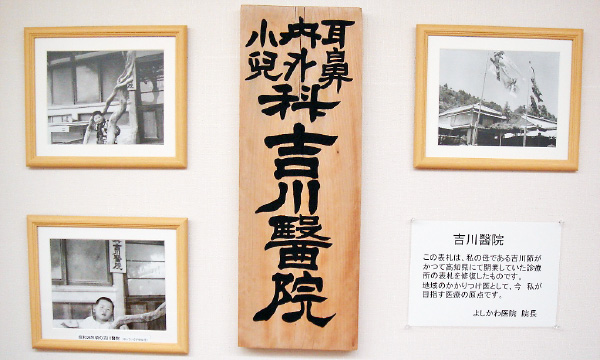 耳鼻
内外
小兒
科
吉川醫院
吉川醫院
この表札は、私の母である吉川節が
かつて高知県にて開業していた診療
所の表札を修復したものです。
地域のかかりつけ医として、今 私が
目指す医療の原点です。
よしかわ医院 院長